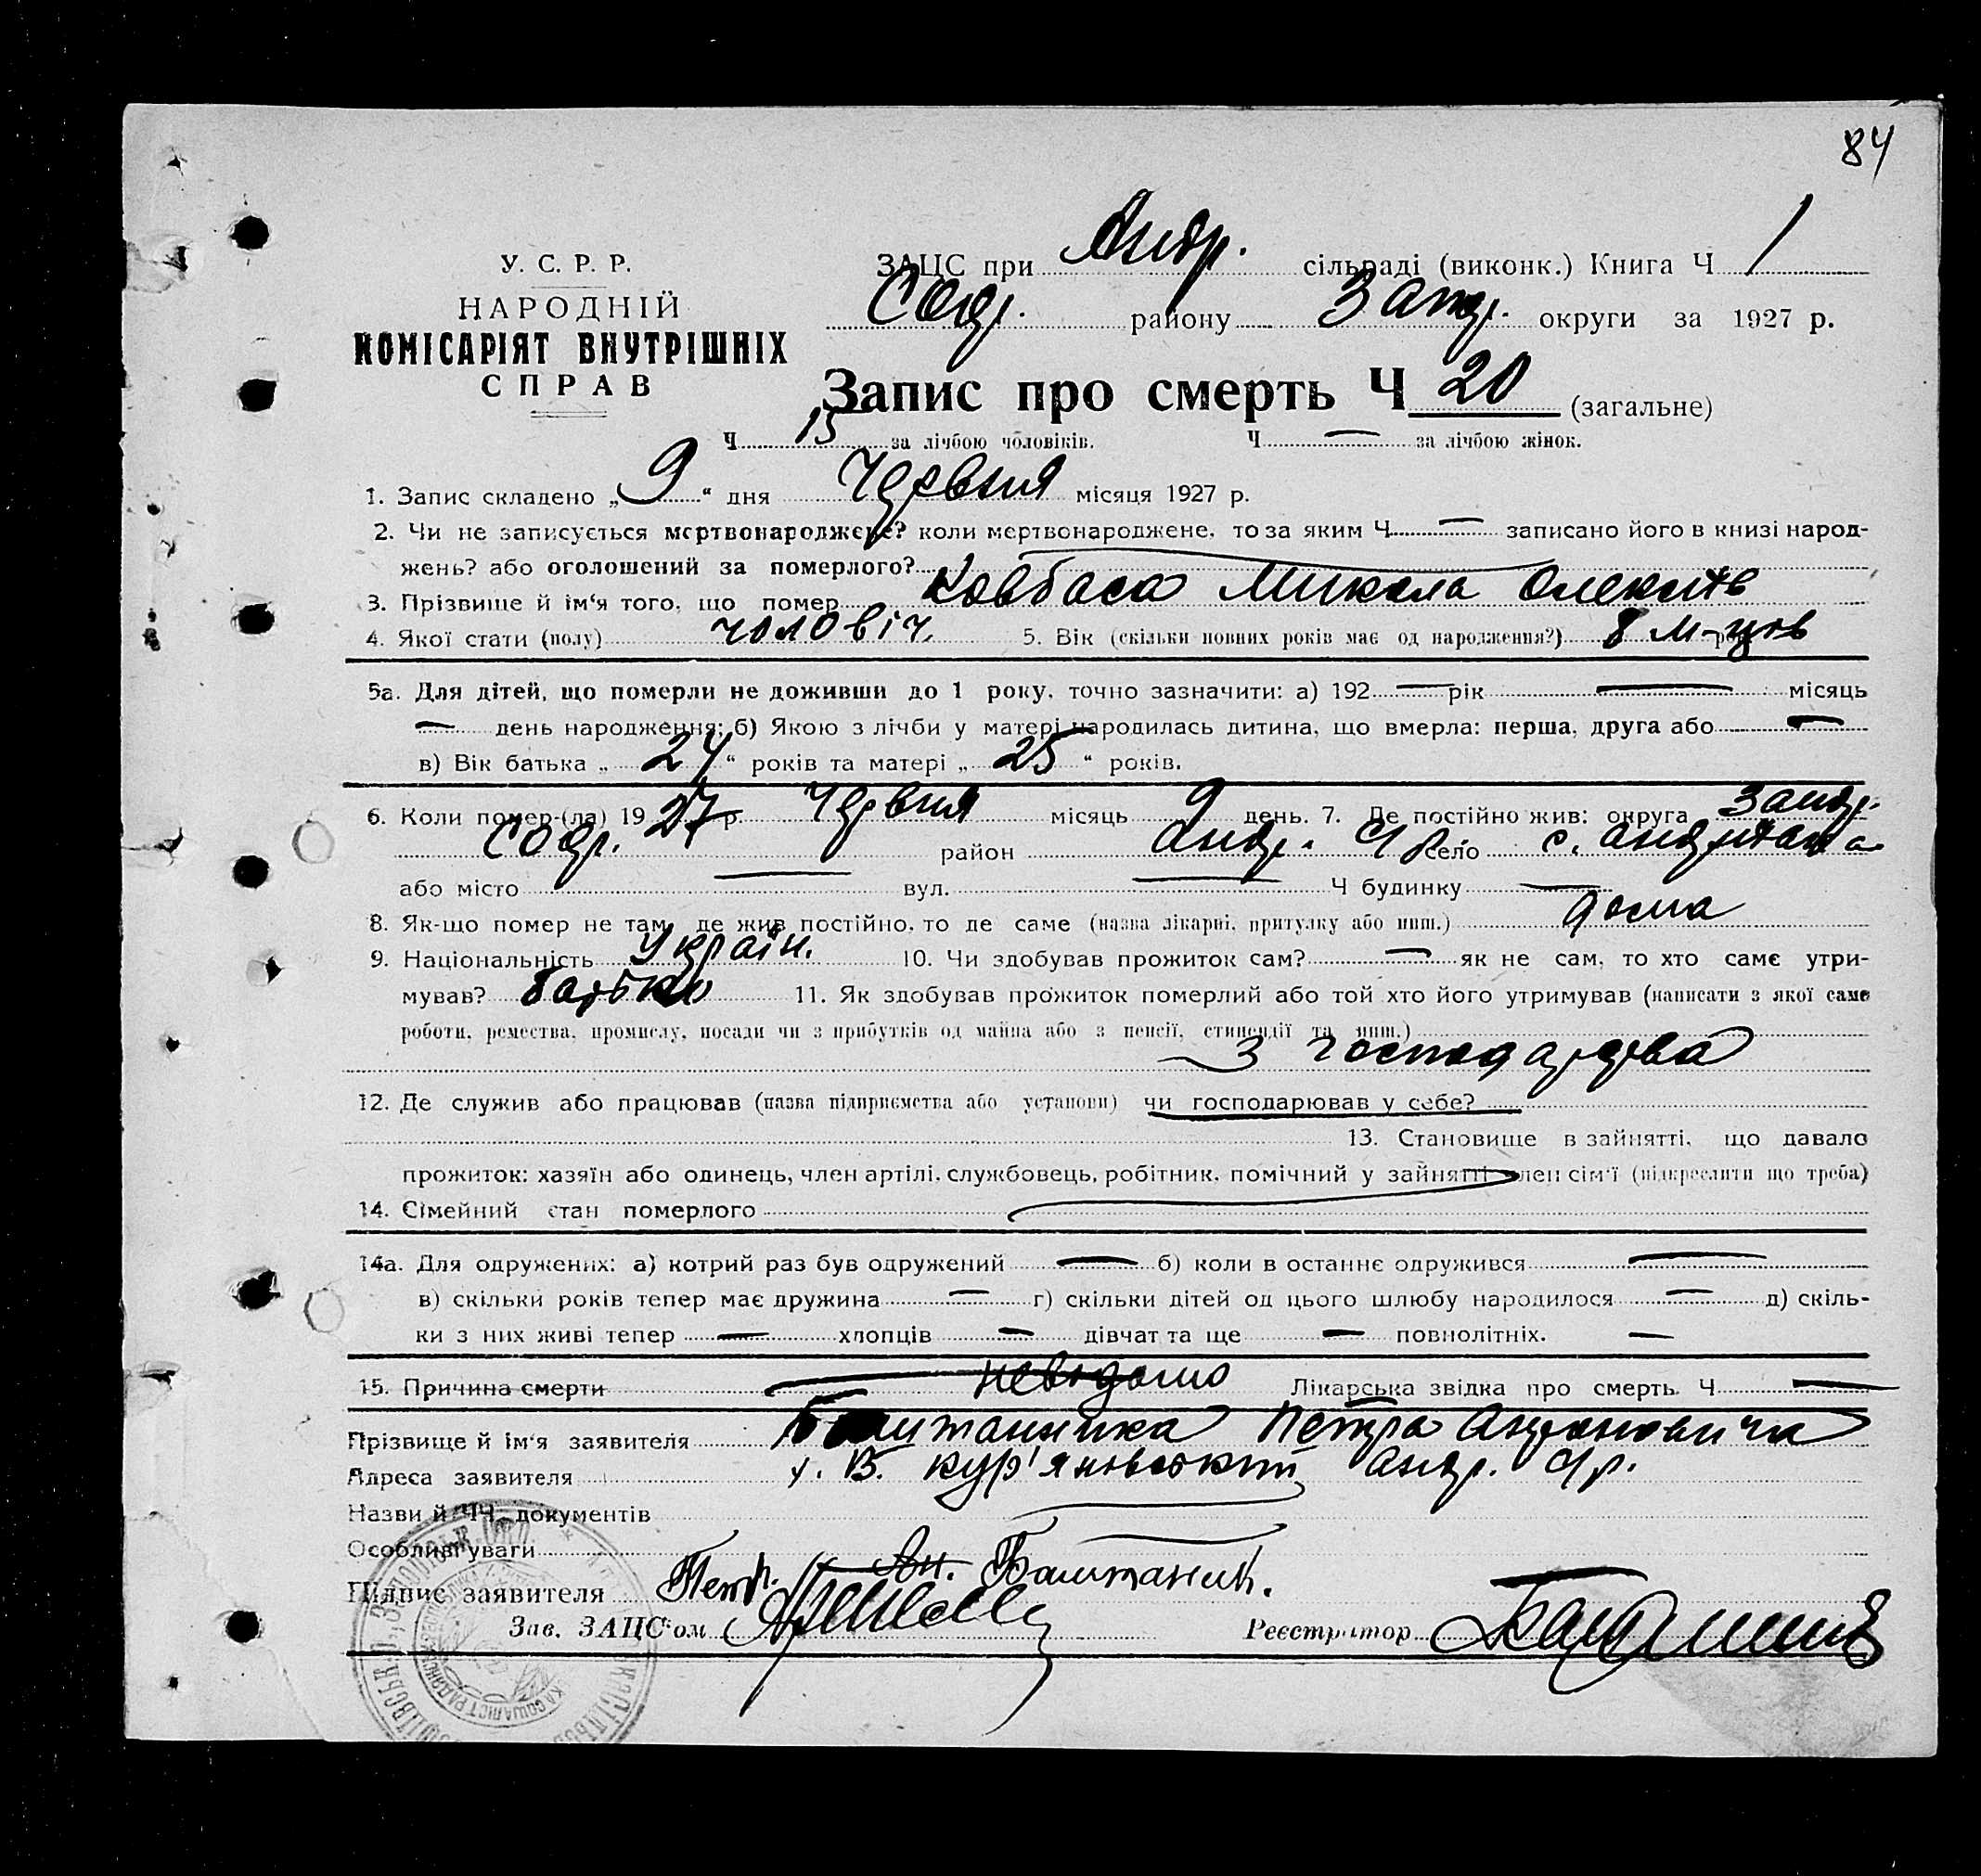 84
У. С. Р. Р.
НАРОДНІЙ
КОМІСАРІЯТ ВНУТРІШНІХ
СПРАВ
ЗАЦС при Андр. сільраді (виконк.) Книга Ч 1
району Запор. округи за 1927 р.
Запис про смерть Ч 20 (загальне)
Ч 15 за лічбою чоловіків. Ч — за лічбою жінок.
1. Запис складено „ 9 “ дня Червня місяця 1927 р.
2. Чи не записується мертвонароджене? коли мертвонароджене, то за яким Ч — записано його в книзі народ-
жень? або оголошений за померлого?
3. Прізвище й ім'я того, що помер Ковбаса Микола Олексіїв
4. Якої стати (полу) чоловіч. 5. Вік (скільки повних років має од народження?) 8 м-ців
5а. Для дітей, що померли не доживши до 1 року, точно зазначити: а) 192 — рік — місяць
— день народження; б) Якою з лічби у матері народилась дитина, що вмерла: перша, друга або —
в) Вік батька „ 24 “ років та матері „ 25 “ років.
6. Коли помер-(ла) 19 27 р. Червня місяць 9 день. 7. Де постійно жив: округа Запор.
район Андр. с/р село с.
або місто — вул. — Ч будинку —
8. Як-що помер не там, де жив постійно, то де саме (назва лікарні, притулку або инш.) дома
9. Національність Україн. 10. Чи здобував прожиток сам? — як не сам, то хто саме утри-
мував? батько 11. Як здобував прожиток померлий або той хто його утримував (написати з якої саме
роботи, ремества, промислу, посади чи з прибутків од майна або з пенсії, стипендії та инш.)
з господарства
12. Де служив або працював (назва підприємства або установи) чи господарював у себе?
13. Становище в зайнятті, що давало
прожиток: хазяїн або одинець, член артілі, службовець, робітник, помічний у зайнятті член сім'ї (підкреслити що треба)
14. Сімейний стан померлого
14а. Для одружених: а) котрий раз був одружений — б) коли в останнє одружився —
в) скільки років тепер має дружина — г) скільки дітей од цього шлюбу народилося — д) скіль-
ки з них живі тепер — хлопців — дівчат та ще — повнолітніх. —
15. Причина смерти невідомо Лікарська звідка про смерть Ч —
Прізвище й ім'я заявителя Баштанника Петра
Адреса заявителя х. В. Кур'яновський Андр. с/р.
Назви й ЧЧ документів
Особливі уваги
Підпис заявителя Петр. Ан. Баштанник.
Зав. ЗАЦС'ом Реєстратор